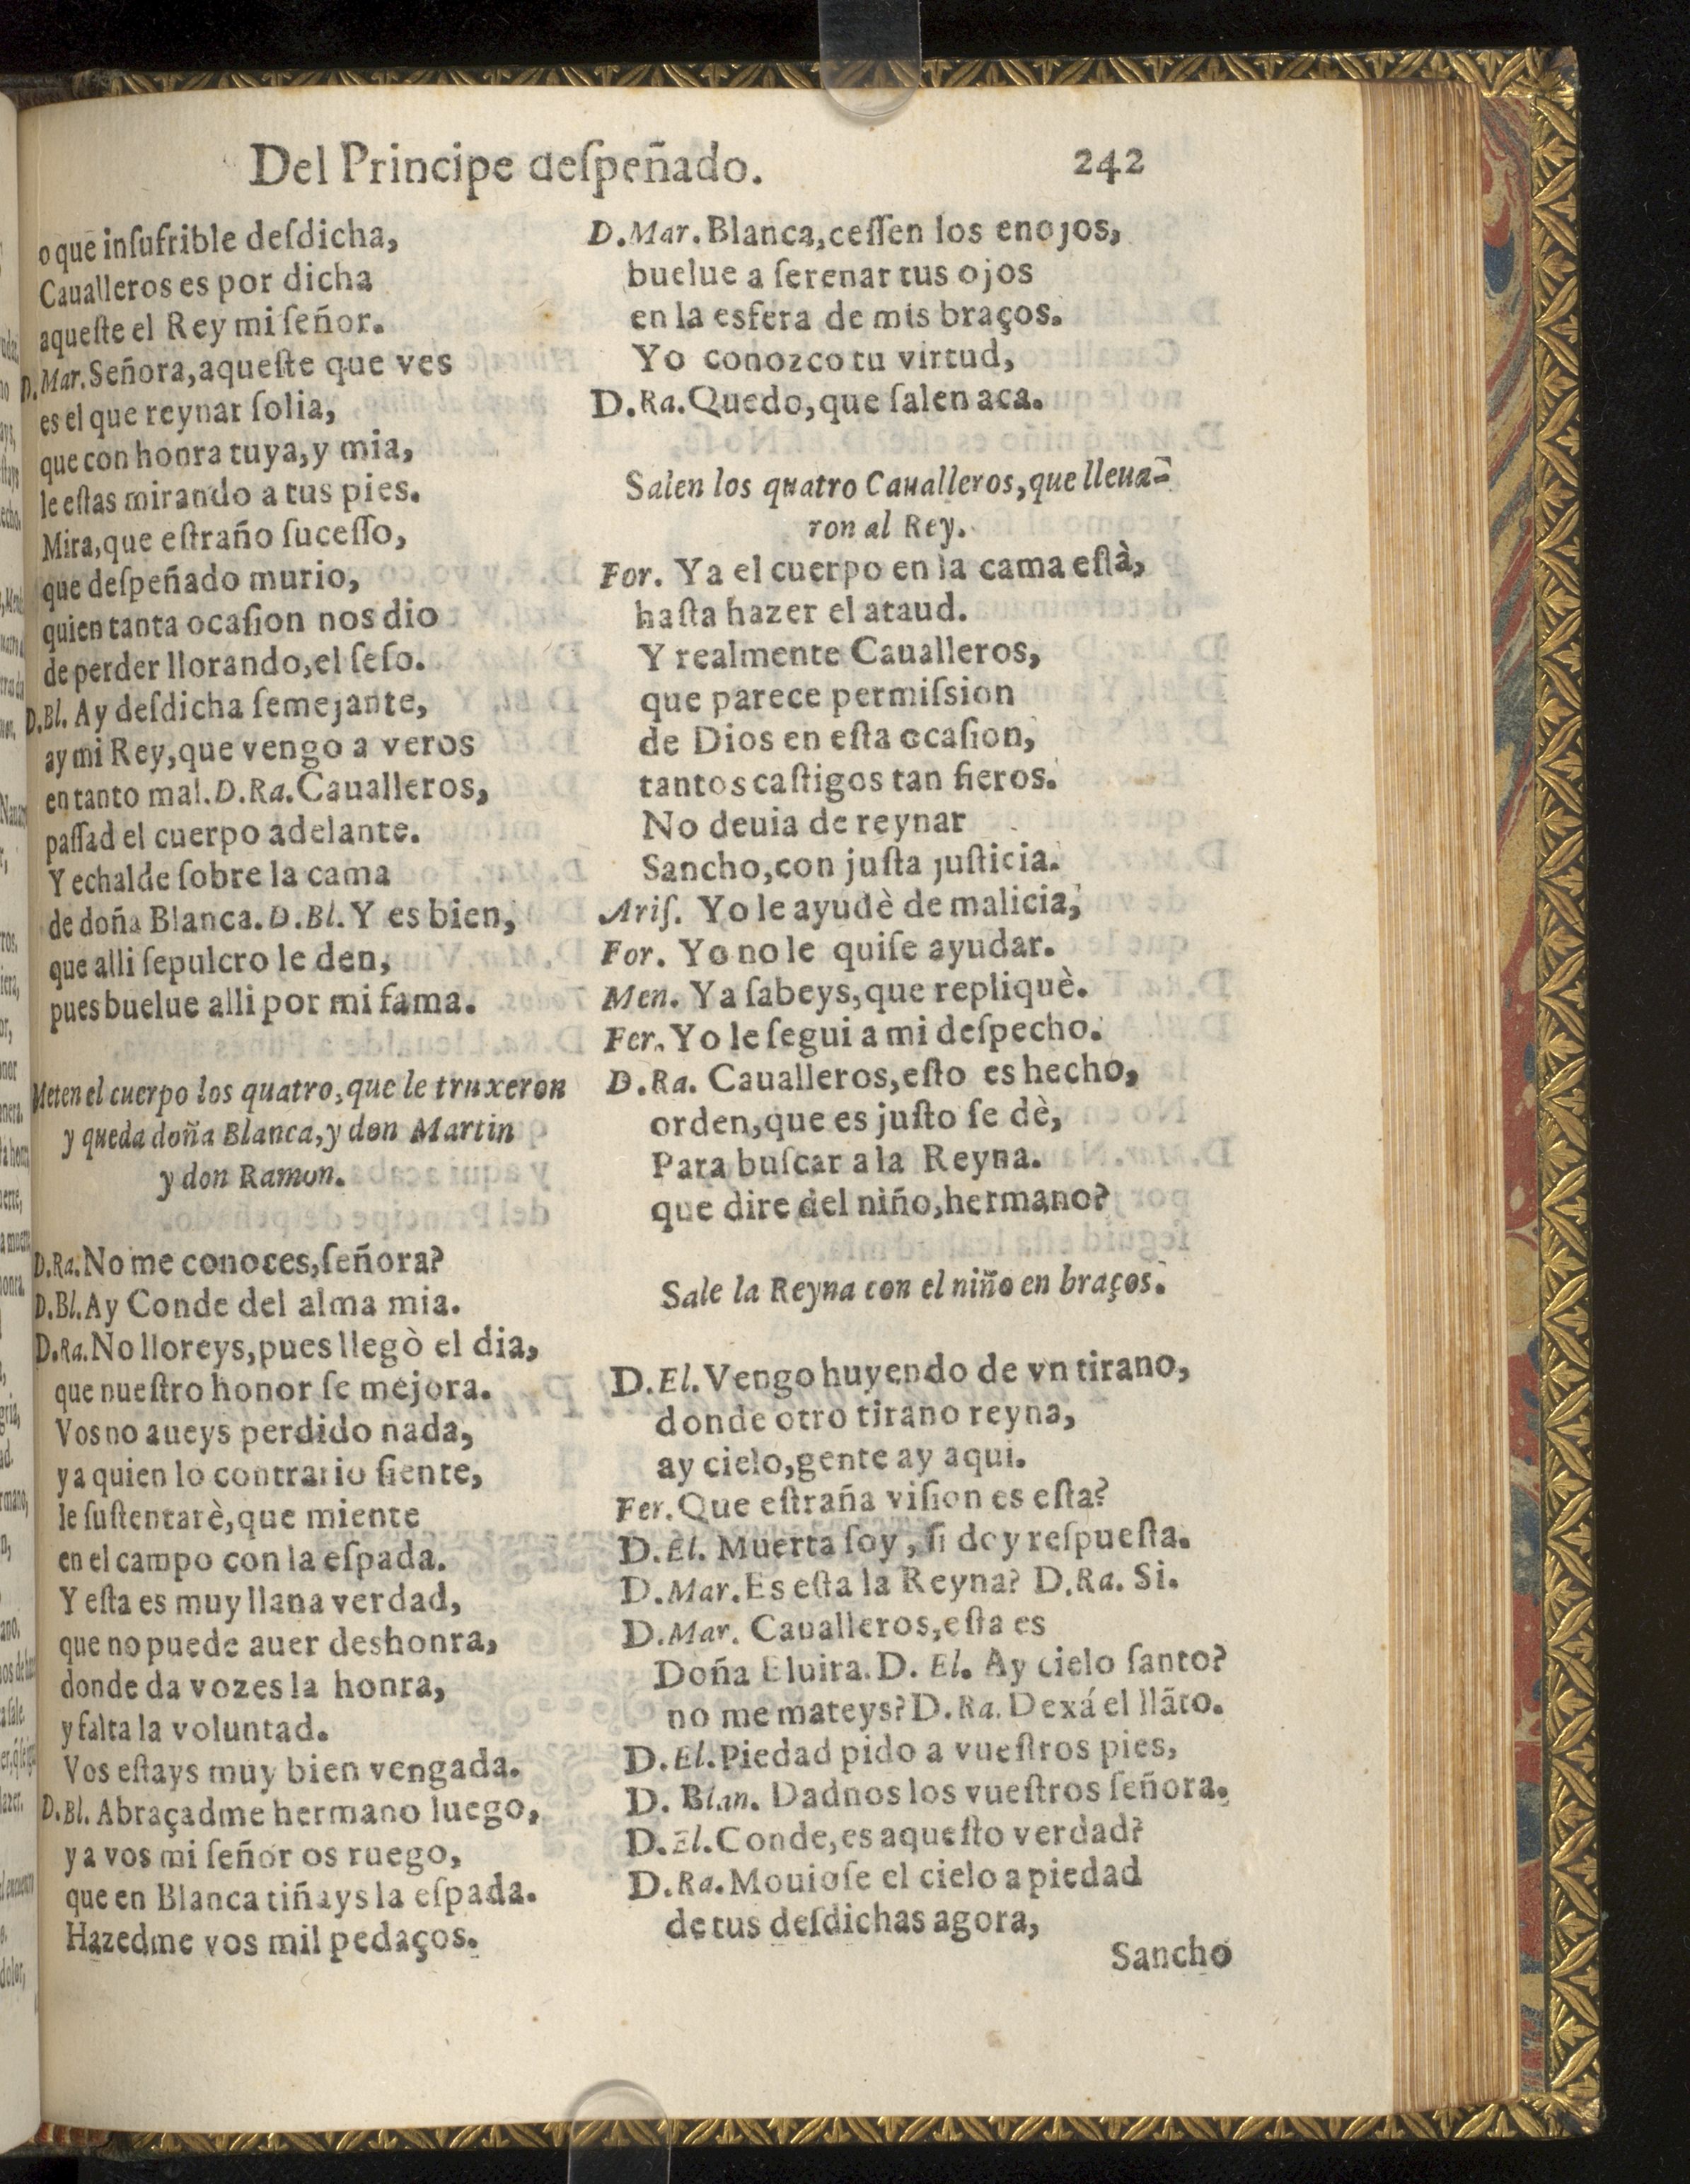 Del Principe deſpeñado.
242
o que inſufrible deſdicha,
Caualleros es por dicha
aqueſte el Rey mi ſeñor.
D.Mar. Señora, aqueſte que ves
es el que reynar ſolia,
que con honra tuya, y mia,
le eſtas mirando a tus pies.
Mira, que eſtraño ſuceſſo,
que deſpeñado murio,
quien tanta ocaſion nos dio
de perder llorando, el ſeſo.
D.Bl. Ay deſdicha ſemejante,
ay mi Rey, que vengo a veros
en tanto mal. D.Ra. Caualleros,
paſſad el cuerpo adelante.
Y echalde ſobre la cama
de doña Blanca. D.Bl. Y es bien,
que alli ſepulcro le den,
pues buelue alli por mi fama.
Meten el cuerpo los quatro, que le truxeron
y queda doña Blanca, y don Martin
y don Ramon.
D.Ra. No me conoces, ſeñora?
D.Bl. Ay Conde del alma mia.
D.Ra. No lloreys, pues llegò el dia,
que nueſtro honor ſe mejora.
Vos no aueys perdido nada,
y a quien lo contrario ſiente,
le ſuſtentarè, que miente
en el campo con la eſpada.
Y eſta es muy llana verdad,
que no puede auer deshonra,
donde da vozes la honra,
y falta la voluntad.
Vos eſtays muy bien vengada.
D.Bl. Abraçadme hermano luego,
y a vos mi ſeñor os ruego,
que en Blanca tiñays la eſpada.
Hazedme vos mil pedaços.
D.Mar. Blanca, ceſſen los enojos,
buelue a ſerenar tus ojos
en la esfera de mis braços.
Yo conozco tu virtud,
D.Ra. Quedo, que ſalen aca.
Salen los quatro Caualleros, que lleua-
ron al Rey.
For. Ya el cuerpo en la cama eſtà,
haſta hazer el ataud.
Y realmente Caualleros,
que parece permiſsion
de Dios en eſta ocaſion,
tantos caſtigos tan fieros.
No deuia de reynar
Sancho, con juſta juſticia.
Ariſ. Yo le ayudè de malicia,
For. Yo no le quiſe ayudar.
Men. Ya ſabeys, que repliquè.
Fer. Yo le ſegui a mi deſpecho.
D.Ra. Caualleros, eſto es hecho,
orden, que es juſto ſe dè,
Para buſcar a la Reyna.
que dire del niño, hermano?
Sale la Reyna con el niño en braços.
D.El. Vengo huyendo de vn tirano,
donde otro tirano reyna,
ay cielo, gente ay aqui.
Fer. Que eſtraña viſion es eſta?
D.El. Muerta ſoy, ſi doy reſpueſta.
D.Mar. Es eſta la Reyna? D.Ra. Si.
D.Mar. Caualleros, eſta es
Doña Eluira. D. El. Ay cielo ſanto?
no me mateys? D.Ra. Dexá el llãto.
D.El. Piedad pido a vueſtros pies,
D. Blan. Dadnos los vueſtros ſeñora.
D.El. Conde, es aqueſto verdad?
D.Ra. Mouioſe el cielo a piedad
de tus deſdichas agora,
Sancho